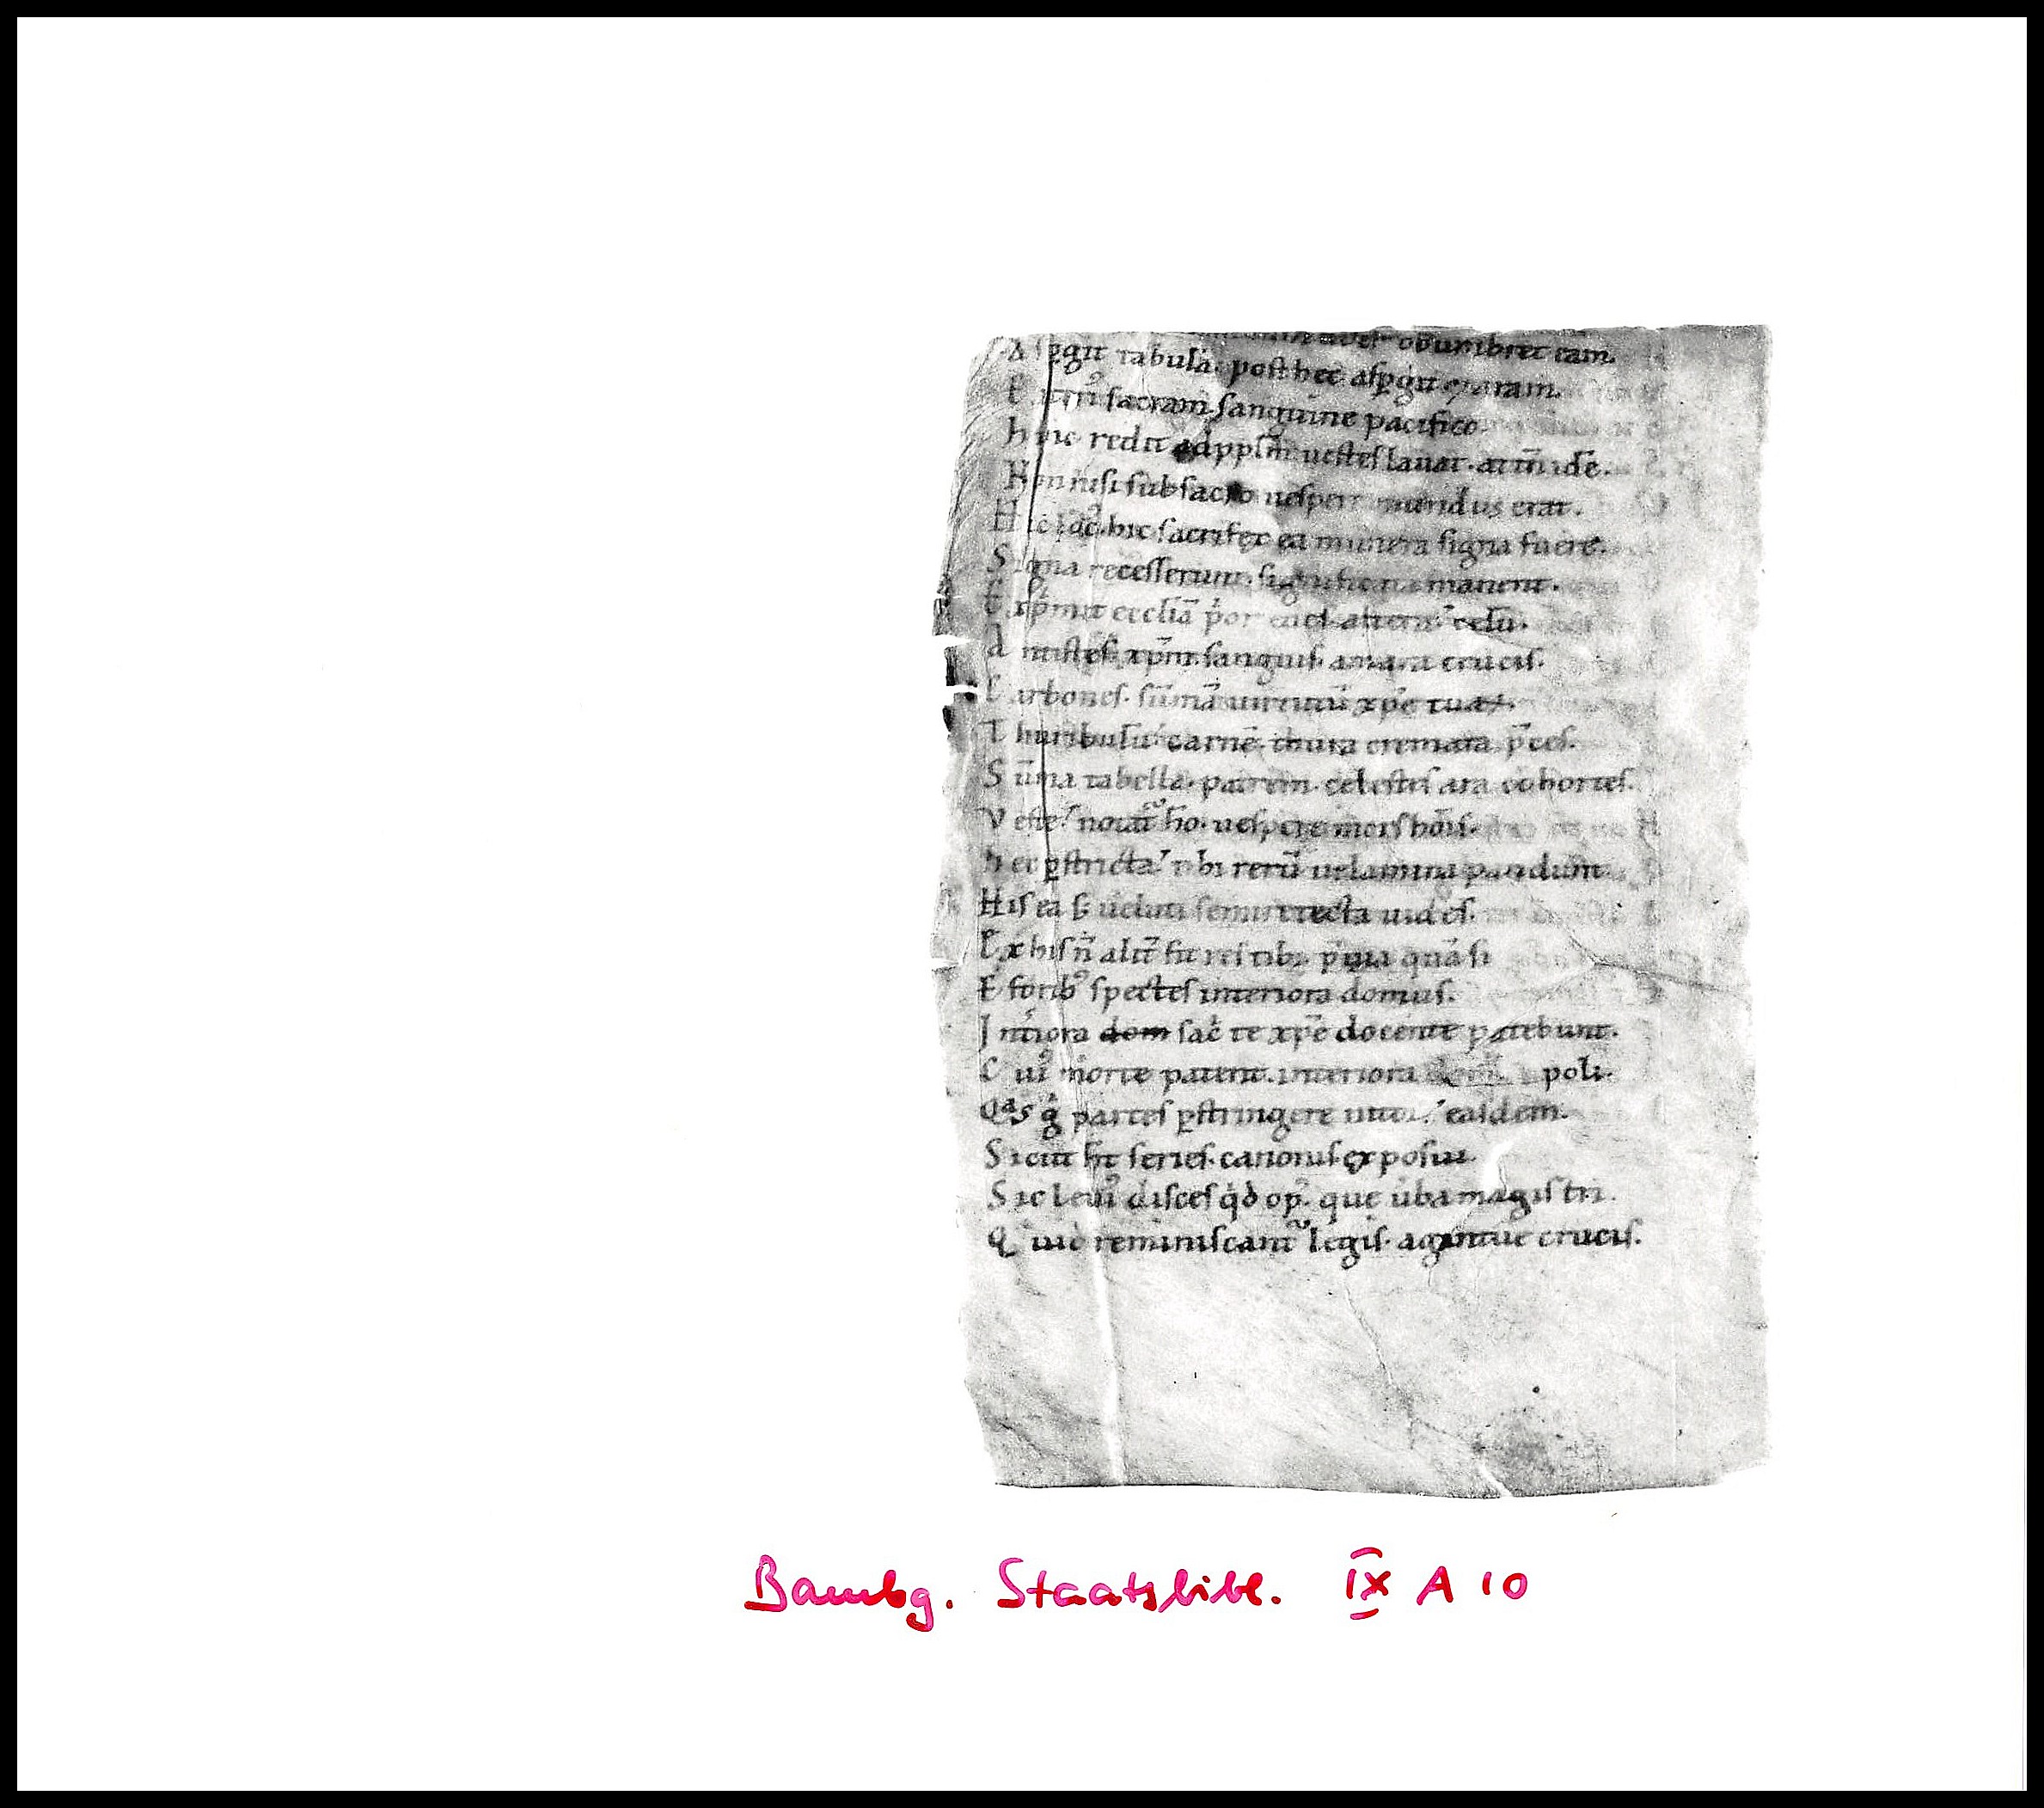 obumbret eam.
A spgit tabulā. post hec aspgit et aram.
sacram sanguine pacifico.
h inc redit ad pplm uestes lauat. attn̄ ide.
N on nisi sub sacro uespere mundus erat.
H ic loc᷒. hic sacrifex ea munera signa fuere.
S igna recesserunt. significata manent.
E xp̄mit eccliā p̄or edes altera celū.
A ntistes xp̄m. sanguis amara crucis.
C arbones. sūmā uirtutū xp̄e tuaꝝ.
T huribulū carnē. thura cremata p̄ces.
S ūma tabella. patrem. celestes ara cohortes.
V este nouat᷑ hō. uespere mors hōis.
h ec ꝑstricta t' bi rerū uelamina pandunt.
H is ea s; ueluti semitecta uides.
E x his n̄ alit᷑ fit res tibi ꝑuia quā si
E forib᷒ spectes interiora domus.
I ntiora dom sac̄ te xp̄e docente patebunt.
C ui᷒ morte patent. interiora poli.
Qas g̊ partes ꝑstringere easdem.
S icut ht series. canonis exposui.
S ic leui᷒ disces qd op᷒. que u̇ba magistri.
Q uid reminiscant᷑ legis. agantue crucis.
Bambg. Staatsbibl. IX A 10